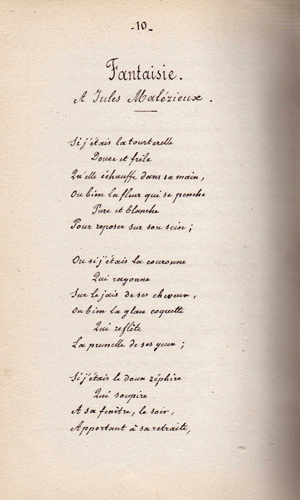 -10-
Fantaisie.
A Jules Malézieux.
Si j'étais la tourterelle
Douce et frêle
Qu'elle échauffe dans sa main,
Ou bien la fleur qui se penche
Pure et blanche
Pour reposer sur son sein ;
Ou si j'étais la couronne
Qui rayonne
Sur le jais de ses cheveux,
Ou bien la glace coquette
Qui reflète
La prunelle de ses yeux ;
Si j'étais le doux zéphire
Qui soupire
A sa fenêtre, le soir,
Apportant à sa retraite,